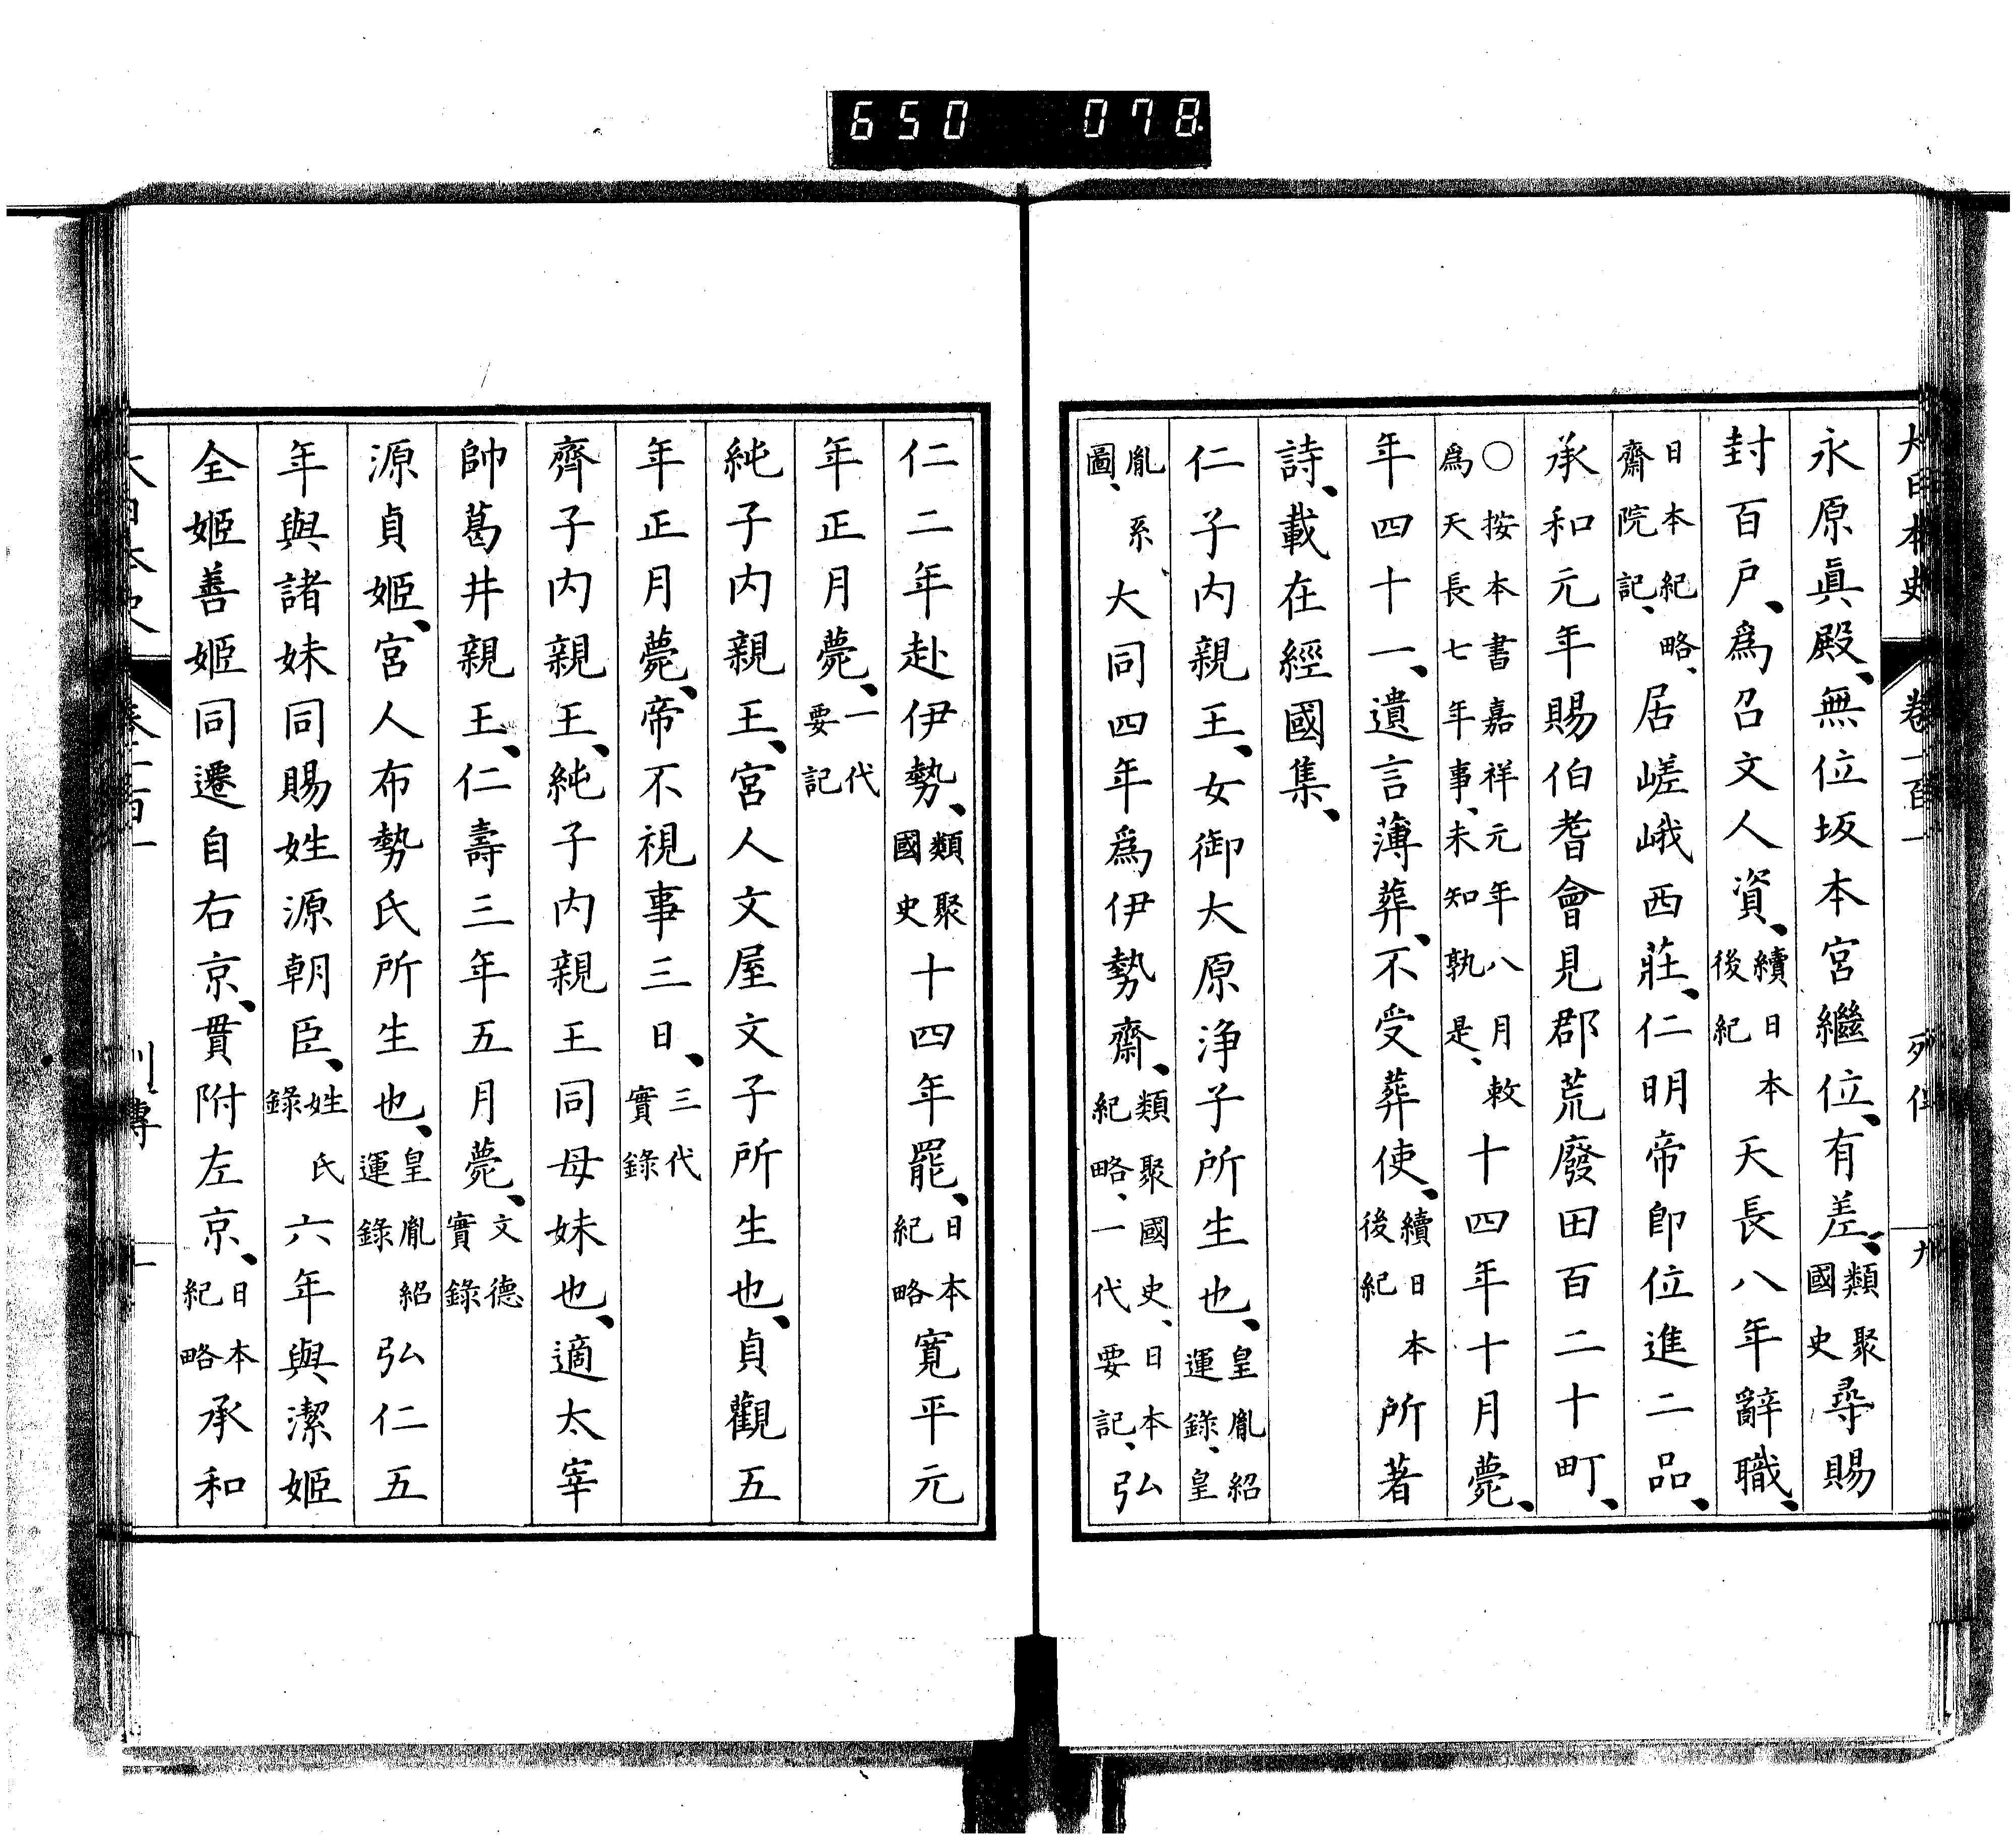 650 078
大日本史 卷一百一 列傳 九
永原眞殿、無位坂本宮繼位、有差、類聚國史尋賜
封百戸、爲召文人資、續日本後紀天長八年辭職、
日本紀略、齋院記、居嵯峨西莊、仁明帝即位進二品、
承和元年賜伯耆會見郡荒廢田百二十町、
〇按本書嘉祥元年八月敕爲天長七年事、未知孰是、十四年十月薨、
年四十一、遺言薄葬、不受葬使、續日本後紀所著
詩、載在經國集、
仁子内親王、女御大原浄子所生也、皇胤紹運錄、皇
胤系圖、大同四年爲伊勢齋、類聚國史、日本紀略、一代要記、弘
仁二年赴伊勢、類聚國史十四年罷、日本紀略寛平元
年正月薨、一代要記
純子内親王、宮人文屋文子所生也、貞觀五
年正月薨、帝不視事三日、三代實錄
齊子内親王、純子内親王同母妹也、適太宰
帥葛井親王、仁壽三年五月薨、文德實錄
源貞姬、宮人布勢氏所生也、皇胤紹運錄弘仁五
年與諸妹同賜姓源朝臣、姓氏錄六年與潔姬
全姬善姬同遷自右京、貫附左京、日本紀略承和